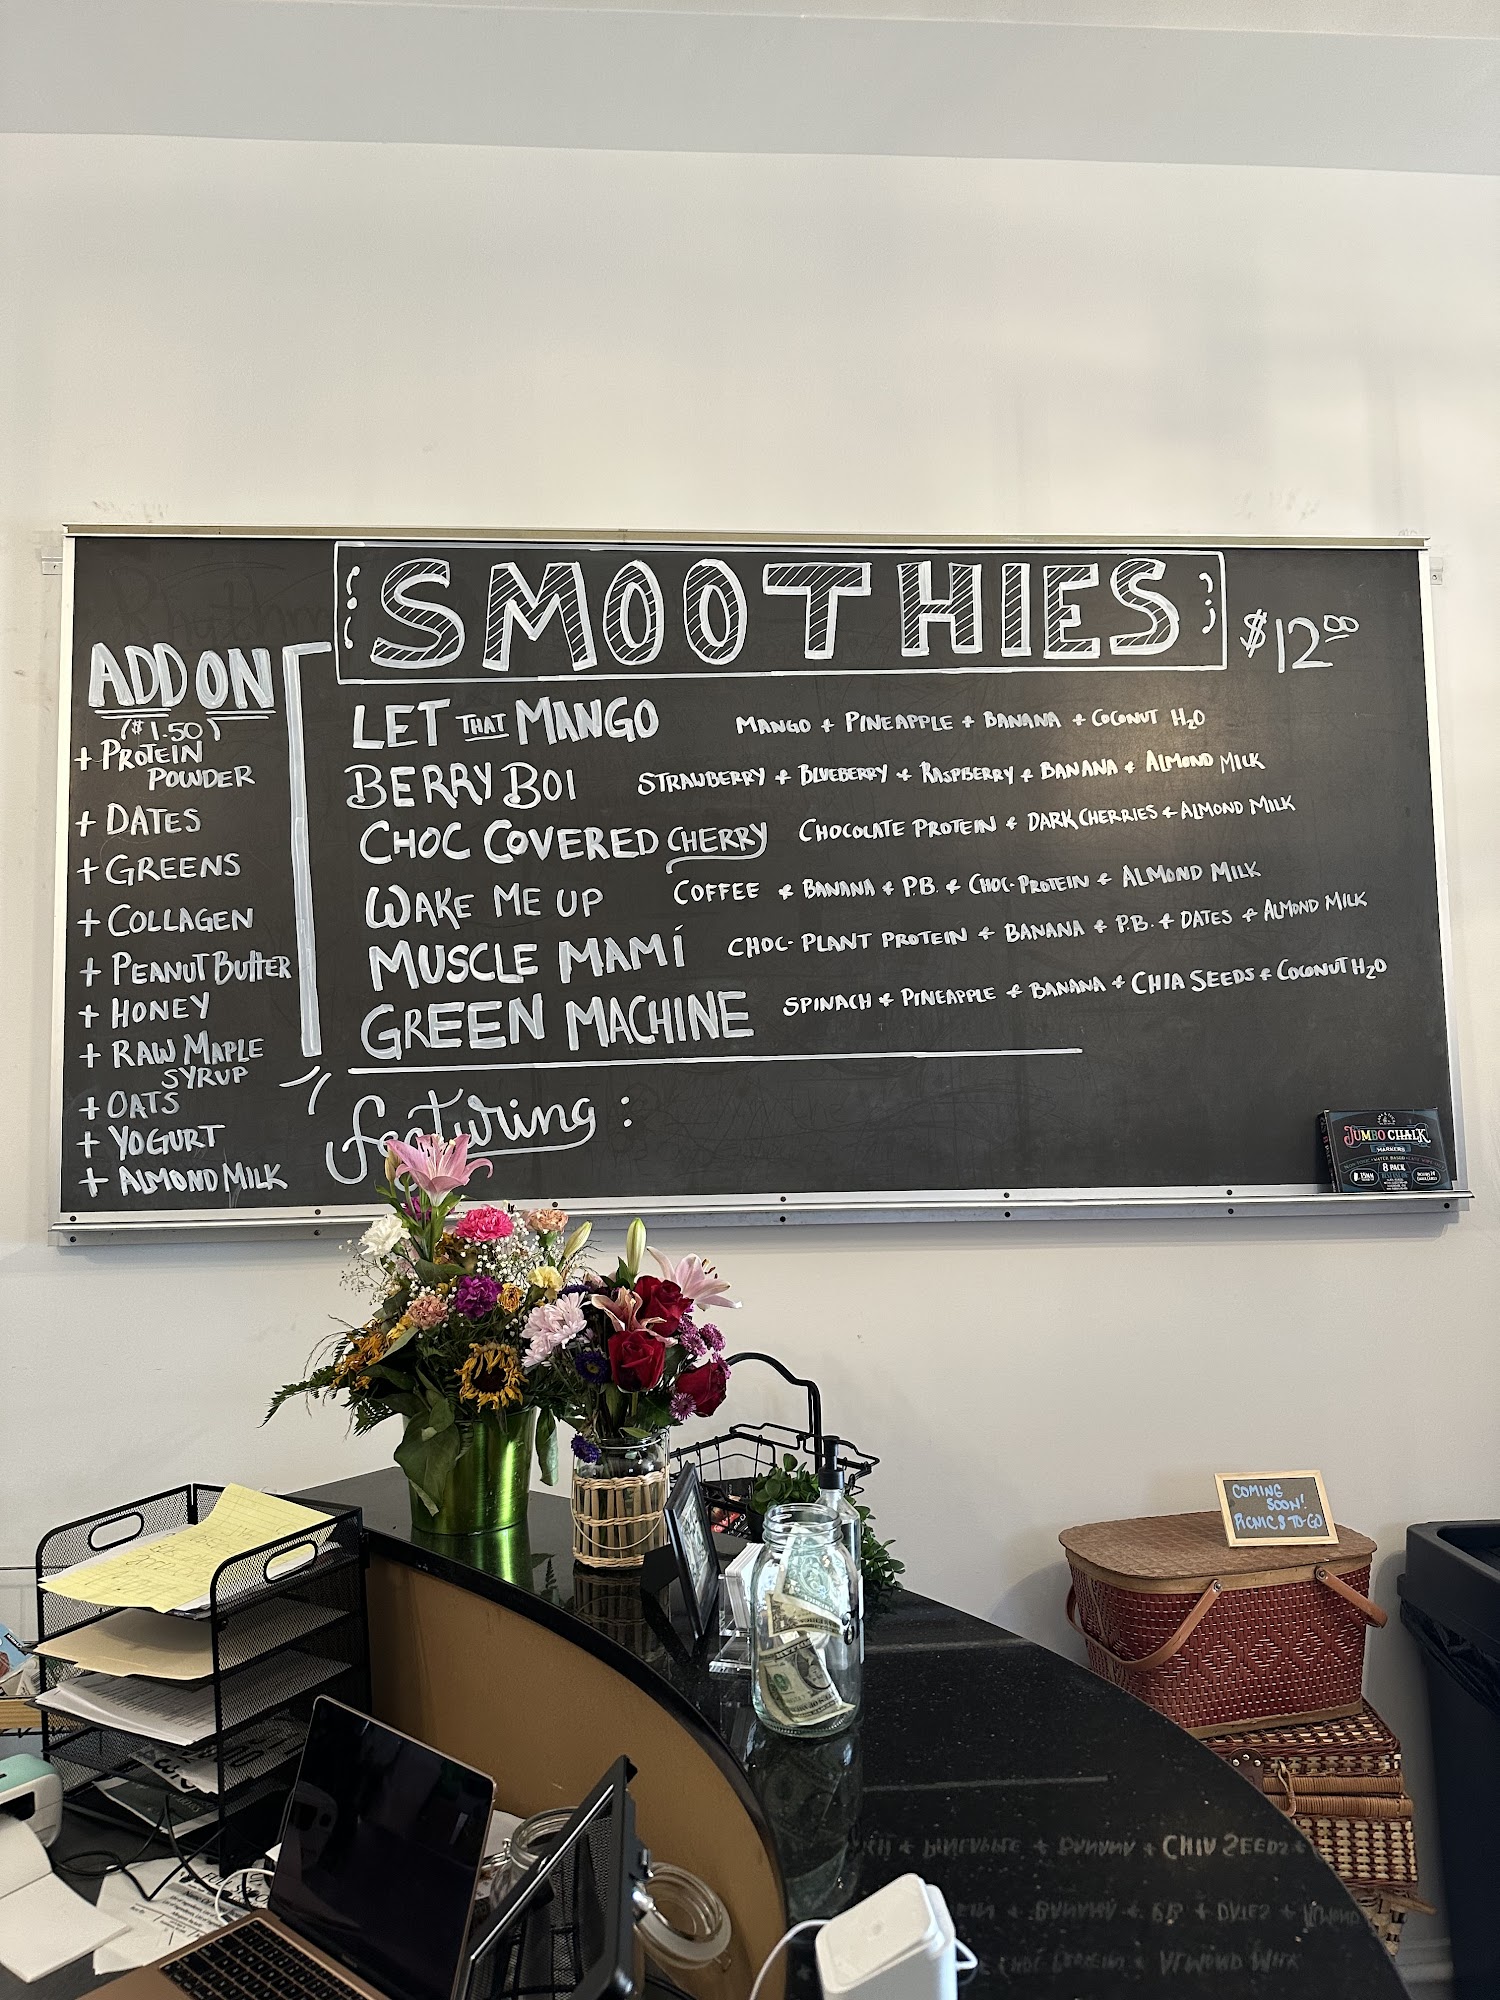 SMOOTHIES
$12.00
ADD ON
($1.50)
+ PROTEIN
POWDER
+ DATES
+ GREENS
+ COLLAGEN
+ PEANUT BUTTER
+ HONEY
+ RAW MAPLE
SYRUP
+ OATS
+ YOGURT
+ ALMOND MILK
LET THAT MANGO MANGO + PINEAPPLE + BANANA + COCONUT H2O
BERRY BOI STRAWBERRY + BLUEBERRY + RASPBERRY + BANANA + ALMOND MILK
CHOC COVERED CHERRY CHOCOLATE PROTEIN + DARK CHERRIES + ALMOND MILK
WAKE ME UP COFFEE + BANANA + P.B. + CHOC-PROTEIN + ALMOND MILK
MUSCLE MAMÍ CHOC-PLANT PROTEIN + BANANA + P.B. + DATES + ALMOND MILK
GREEN MACHINE SPINACH + PINEAPPLE + BANANA + CHIA SEEDS + COCONUT H2O
featuring:
JUMBO CHALK
MARKERS
8 PACK
COMING
SOON!
PICNICS TO-GO